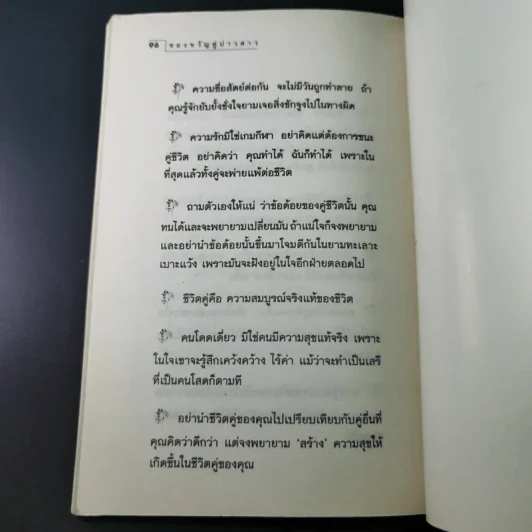 96 ของขวัญคู่บ่าวสาว
ความซื่อสัตย์ต่อกัน จะไม่มีวันถูกทำลาย ถ้า
คุณรู้จักยับยั้งชั่งใจยามเจอสิ่งชักจูงไปในทางผิด
ความรักมิใช่เกมกีฬา อย่าคิดแต่ต้องการชนะ
คู่ชีวิต อย่าคิดว่า คุณทำได้ ฉันก็ทำได้ เพราะใน
ที่สุดแล้วทั้งคู่จะพ่ายแพ้ต่อชีวิต
ถามตัวเองให้แน่ ว่าข้อด้อยของคู่ชีวิตนั้น คุณ
ทนได้และจะพยายามเปลี่ยนมัน ถ้าแน่ใจก็จงพยายาม
และอย่านำข้อด้อยนั้นขึ้นมาโจมตีกันในยามทะเลาะ
เบาะแว้ง เพราะมันจะฝังอยู่ในใจอีกฝ่ายตลอดไป
ชีวิตคู่คือ ความสมบูรณ์จริงแท้ของชีวิต
คนโดดเดี่ยว มิใช่คนมีความสุขแท้จริง เพราะ
ในใจเขาจะรู้สึกเคว้งคว้าง ไร้ค่า แม้ว่าจะทำเป็นเสรี
ที่เป็นคนโสดก็ตามที
อย่านำชีวิตคู่ของคุณไปเปรียบเทียบกับคู่อื่นที่
คุณคิดว่าดีกว่า แต่จงพยายาม 'สร้าง' ความสุขให้
เกิดขึ้นในชีวิตคู่ของคุณ